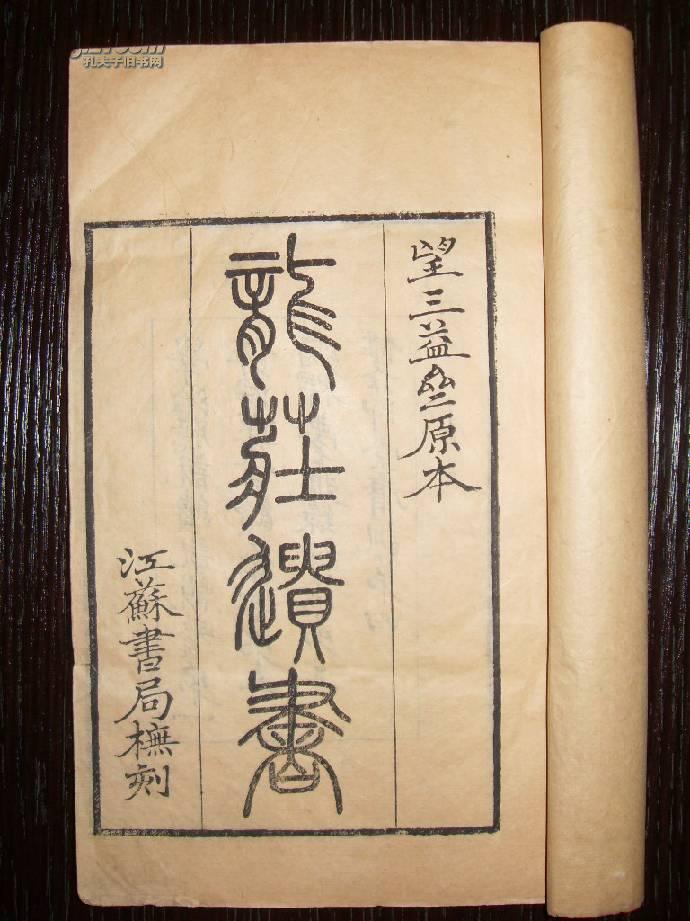 孔夫子旧书网
望三益亝原本
龍莊遺書
江蘇書局橅刻